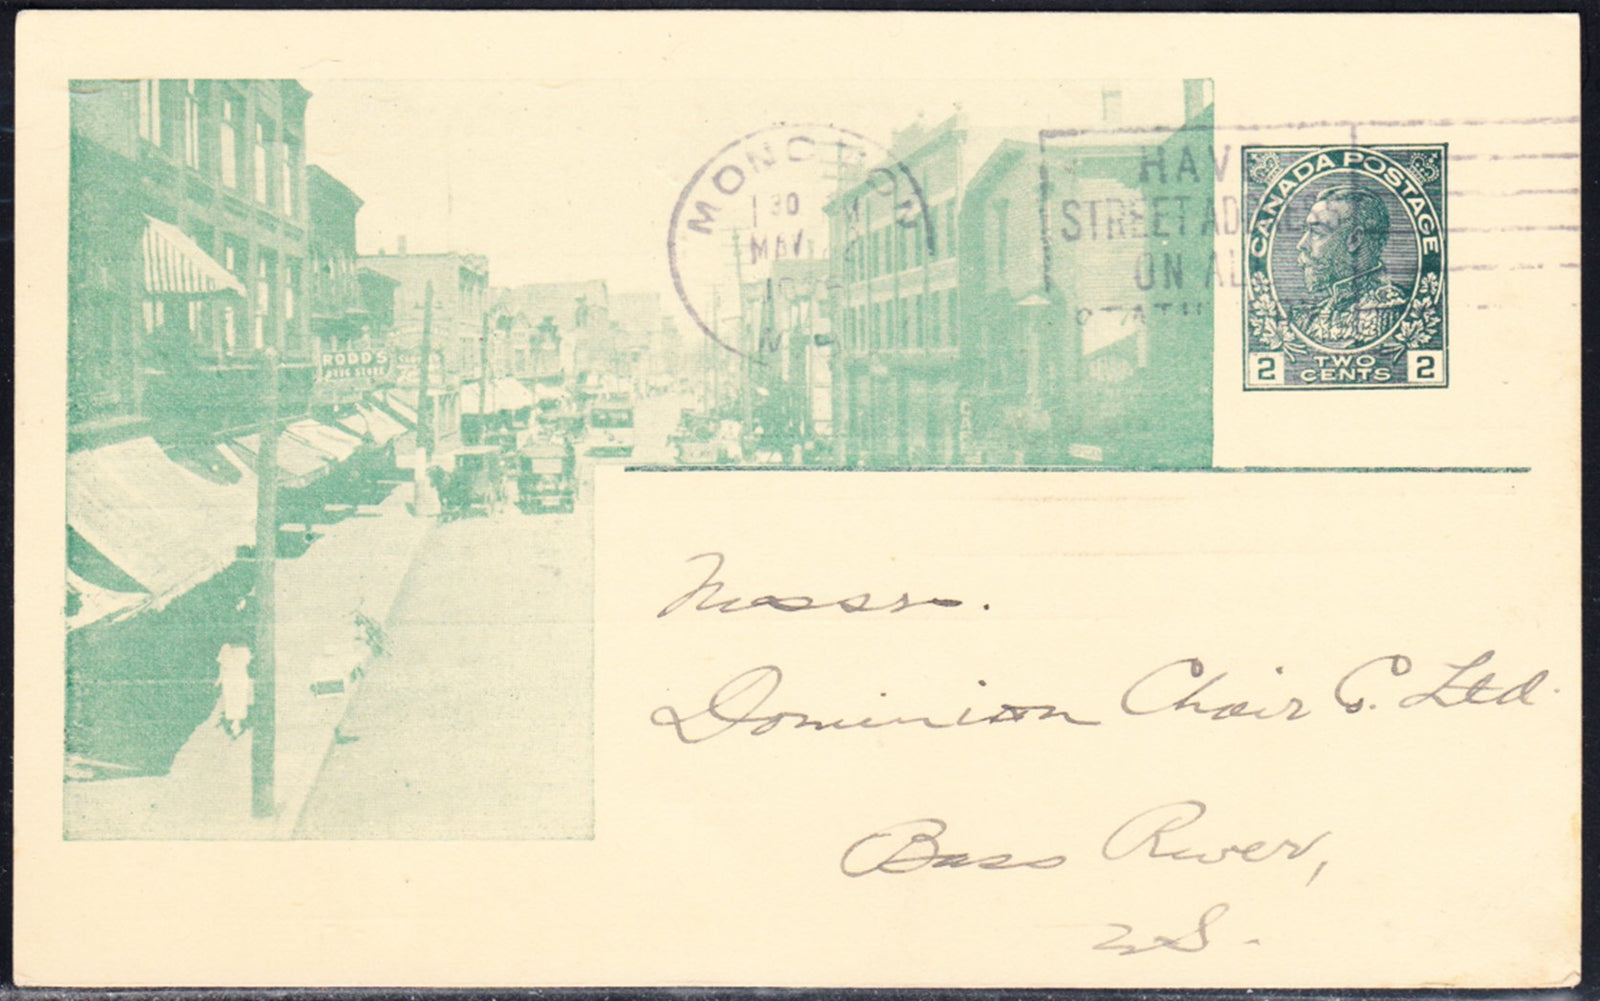 MONCTON
30 M
MAY
N.B.
HAVE
STREET ADDRESS
ON ALL
CANADA POSTAGE
2 TWO CENTS 2
RODD'S
DRUG STORE
Messrs.
Dominion Chair Co. Ltd.
Bass River,
N.S.